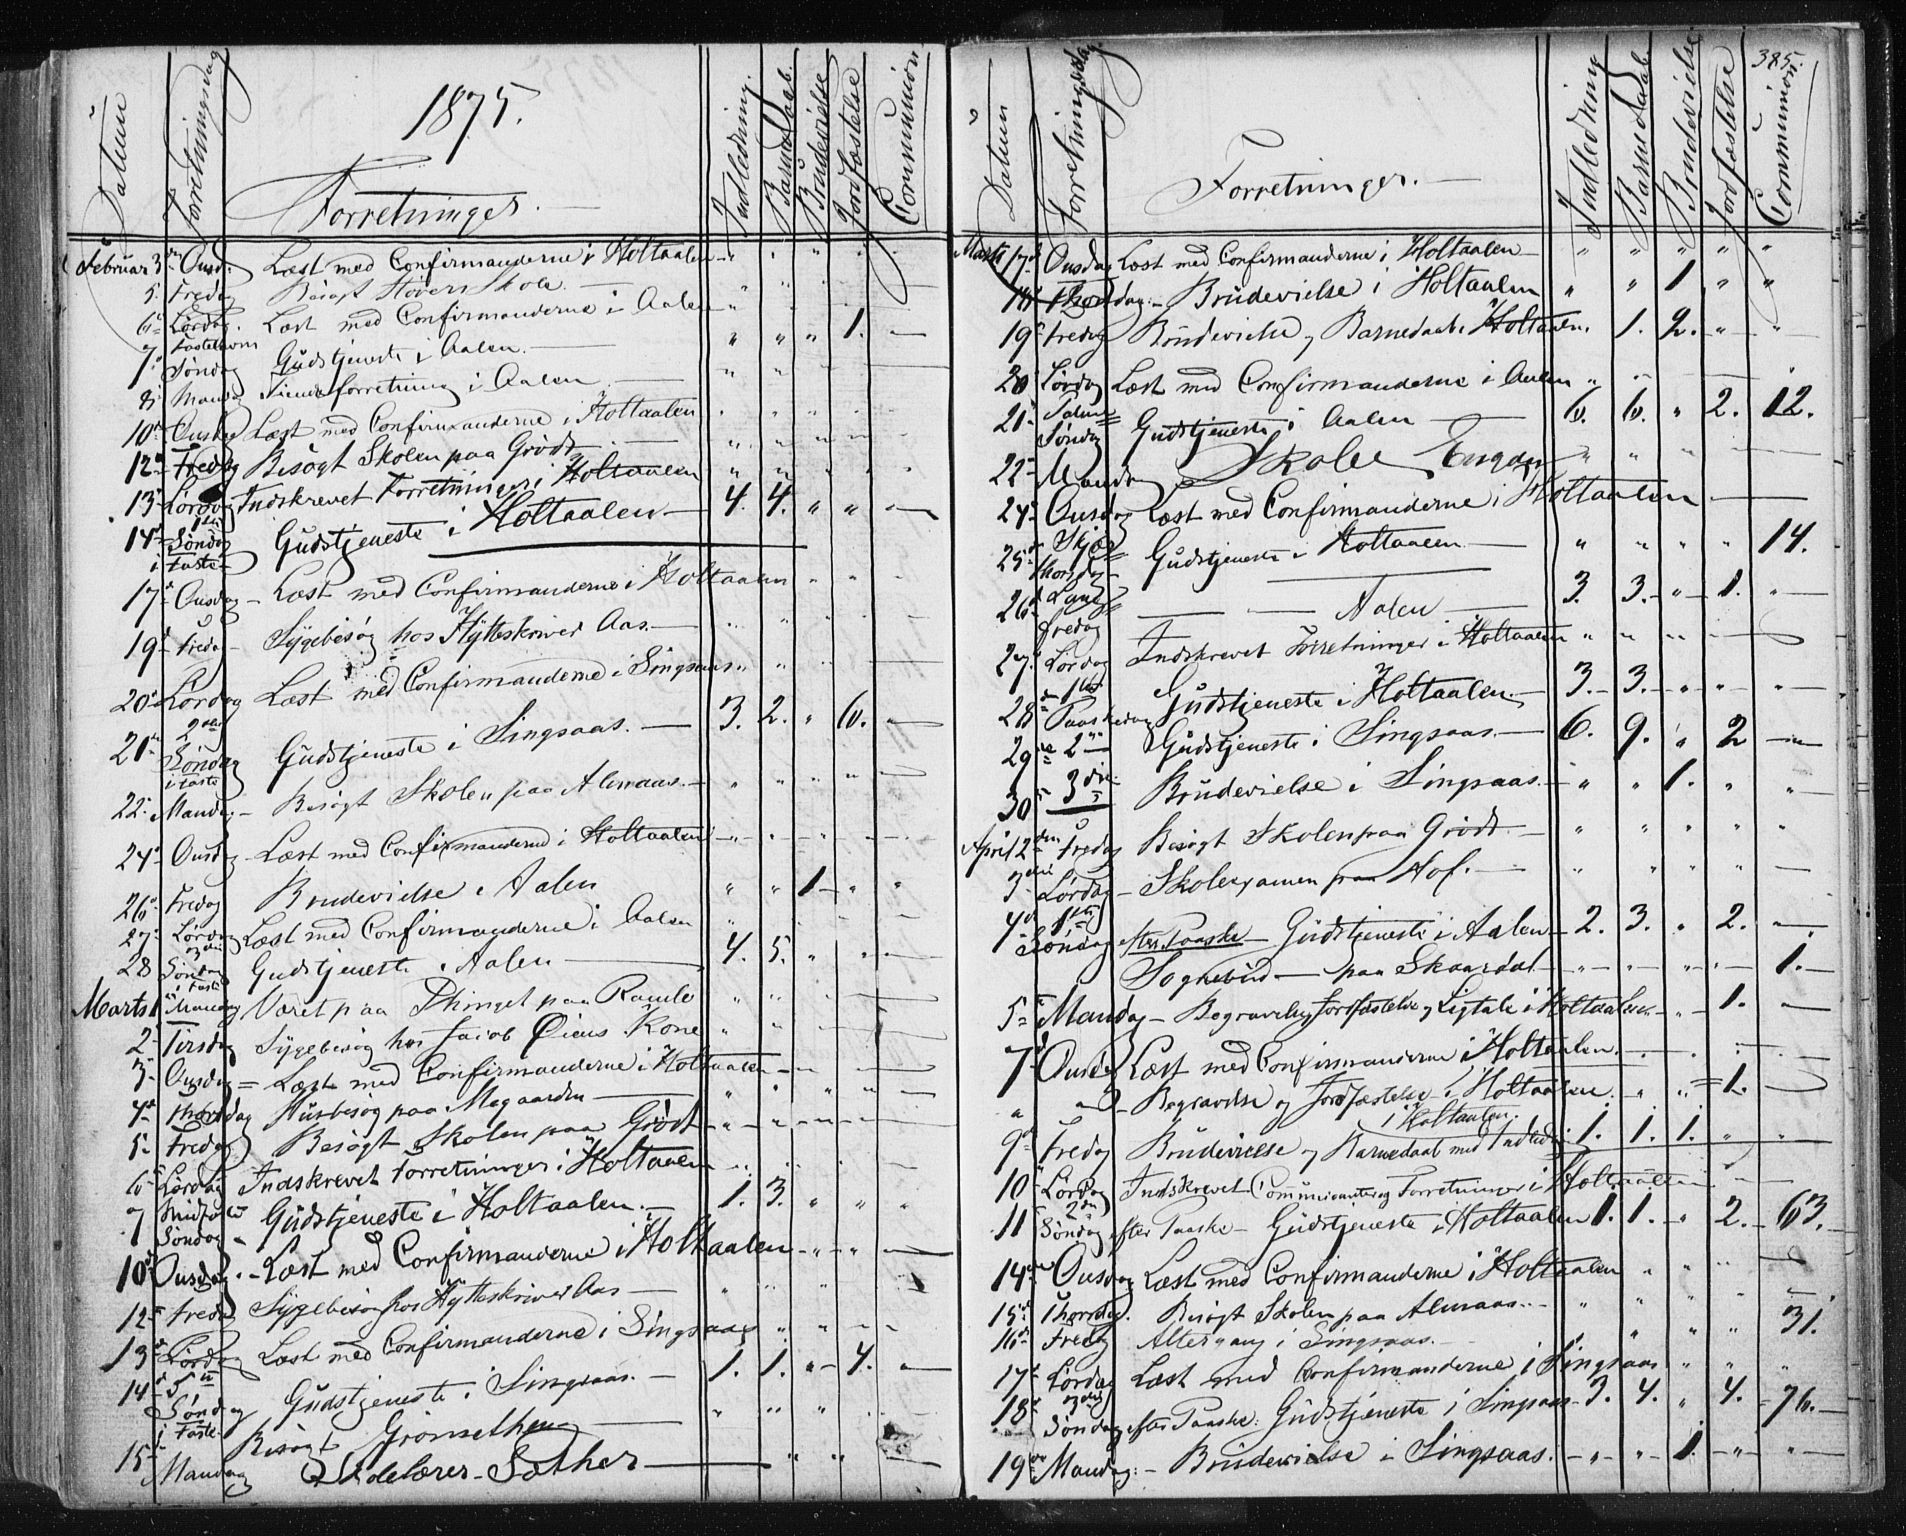 1875.
Datum Forretningsdag Forretninger. Indledning. Barnedaab. Brudevielse Jordfæstelse Communion
Februar 3 Onsd. Læst med Confirmanderne i Holtaalen
5 Fredag Besøgt Skole
6 Lørdag. Læst med Confirmanderne i Aalen
7 Fastelavns Søndag Gudstjeneste i Aalen. " " " 1.
8 Mandag forretning i Aalen
10 Onsdag Læst med Confirmanderne i Holtaalen
12 Fredag Besøgt Skolen paa Grødt
13 Lørdag Indskrevet Forretninger i Holtaalen
14 1ste Søndag i Faste Gudstjeneste i Holtaalen 4. 4. " "
17 Onsdag - Læst med Confirmanderne i Holtaalen
19 Fredag - Sygebesøg hos Hytteskriver Aas.
20 Lørdag Læst med Confirmanderne i Singsaas
21 2den Søndag i Faste Gudstjeneste i Singsaas. 3. 2. " 6.
22 Mandag - Besøgt Skolen paa Almaas.
24 Onsdag Læst med Confirmanderne i Holtaalen
26 Fredag Brudevielse i Aalen " " 1 " "
27 Lørdag Læst med Confirmanderne i Aalen
28 3die Søndag i Faste Gudstjeneste i Aalen 4. 5. " "
Marts 1 Mandag Været paa Thinget paa Ramlo
2 Tirsdag Sygebesøg hos Jacob Kone
3 Onsdag - Læst med Confirmanderne i Holtaalen
4 Thorsdag Husbesøg paa Mogaarden
5 Fredag Besøgt Skolen paa Grødt
6 Lørdag Indskrevet Forretninger i Holtaalen
7 Midfaste Søndag Gudstjeneste i Holtaalen. 1. 3. " " "
10 Onsdag. - Læst med Confirmanderne i Holtaalen
12 Fredag Sygebesøg hos Hytteskriver Aas
13 Lørdag Læst med Confirmanderne i Singsaas
14 5 Søndag i Faste Gudstjeneste i Singsaas. 1. 1. " 4.
15 Mandag Besøgt

385.
Datum Forretningsdag Forretninger. Indledning Barnedaab. Brudevielse Jordfæstelse Communion
Marts 17 Onsdag Læst med Confirmanderne i Holtaalen " " " " "
18 Thorsdag: - Brudevielse i Holtaalen " " 1 " "
19 Fredag Brudevielse og Barnedaab i Holtaalen. 1. 2. " "
20 Lørdag Læst med Confirmanderne i Aalen
21 Palme Søndag Gudstjeneste i Aalen 6. 6. " 2. 12.
22 Mandag Skole
24 Onsdag Læst med Confirmanderne i Holtaalen
25 Skjær Thorsdag Gudstjeneste i Holtaalen " " " " 14.
26 Lang Fredag — — Aalen 3. 3. " 1. "
27 Lørdag Indskrevet Forretninger i Holtaalen
28 1ste Paaskedag Gudstjeneste i Holtaalen. 3. 3. " " "
29 2 Gudstjeneste i Singsaas. 6. 9. " 2
30 3die Brudevielse i Singsaas. " " 1. " "
April 2den Fredag Besøgt Skolen paa Grødt " " " " "
3die Lørdag - Skolexamen paa Hof.
4 1ste Søndag efter Paaske - Gudstjeneste i Aalen 2. 3. " 2.
Sognebud — paa Skaardal 1.
5 Mandag - Begravelse, Jordfæstelse og Ligtale i Holtaalen 1.
7 Onsdag Læst med Confirmanderne i Holtaalen.
" " - Begravelse og Jordfæstelse i Holtaalen. " " 1.
i Holtaalen.
9 Fredag Brudevielse og Barnedaab med Indledning 1. 1. 1. " "
10 Lørdag Indskrevet Communicanter og Forretninger i Holtaalen
11 2den Søndag efter Paaske - Gudstjeneste i Holtaalen 1. 1. " 2. 63.
14 Onsdag Læst med Confirmanderne i Holtaalen
15 Thorsdag. Besøgt Skolen paa Almaas.
16 Fredag Altergang i Singsaas. " " " " 31.
17 Lørdag Læst med Confirmanderne i Singsaas
18 3die Søndag efter Paaske: Gudstjeneste i Singsaas 3. 4. " 4. 76.
19 Mandag: - Brudevielse i Singsaas. " " 1 " "